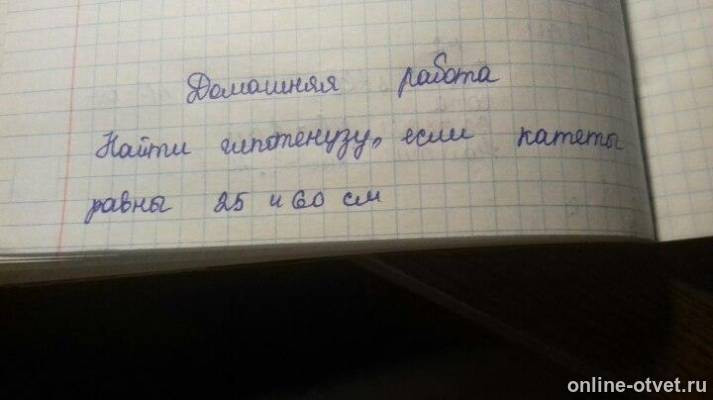 Домашняя работа
Найти гипотенузу, если катеты
равны 25 и 60 см
online-otvet.ru